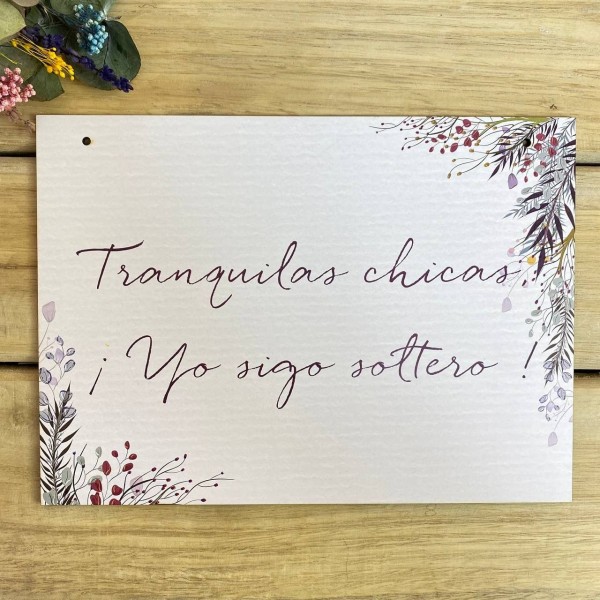 Tranquilas chicas,!
¡ Yo sigo soltero !